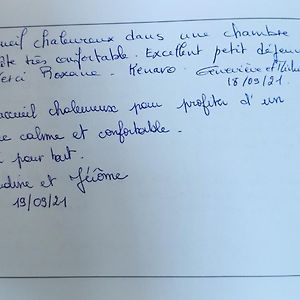 ueil chaleureux dans une chambre
ôte très confortable. Excellent petit déjeun
erci Roxane. Kénavo. Geneviève et
18/09/21
accueil chaleureux pour profiter d'un
e calme et confortable.
i pour tout.
udine et Jérôme
19/09/21